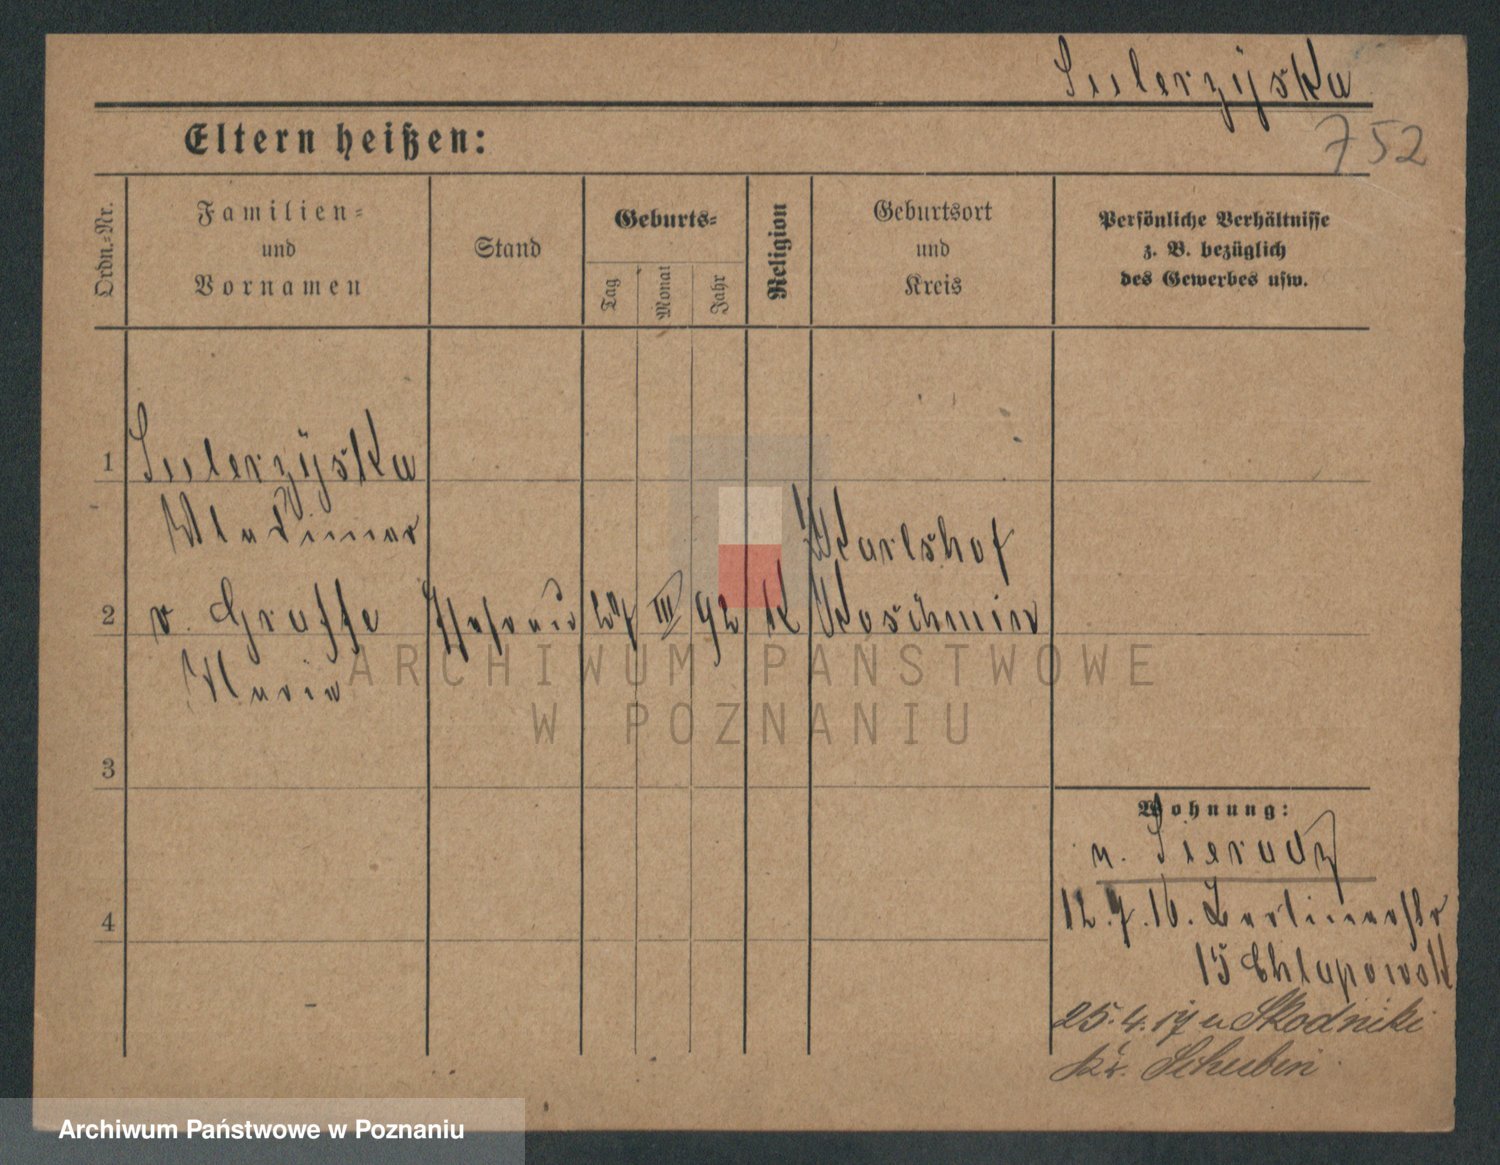 Sulerzyska
752
Eltern heißen:
Ordn.=Nr.
Familien=
und
Vornamen
Stand
Geburts=
Tag
Monat
Jahr
Religion
Geburtsort
und
Kreis
Persönliche Verhältnisse
z. B. bezüglich
des Gewerbes usw.
1
Sulerzyska
Wladimar
2
v. Graffe
Maria
Ehefrau
27
III
92
K
Karlshof
Koschmin
3
4
Wohnung:
n. Sieradz
12.7.16. Berlinerstr
15 Chlapowsk
25.4.17 n Skodniki
Kr. Schubin
ARCHIWUM PAŃSTWOWE
W POZNANIU
Archiwum Państwowe w Poznaniu